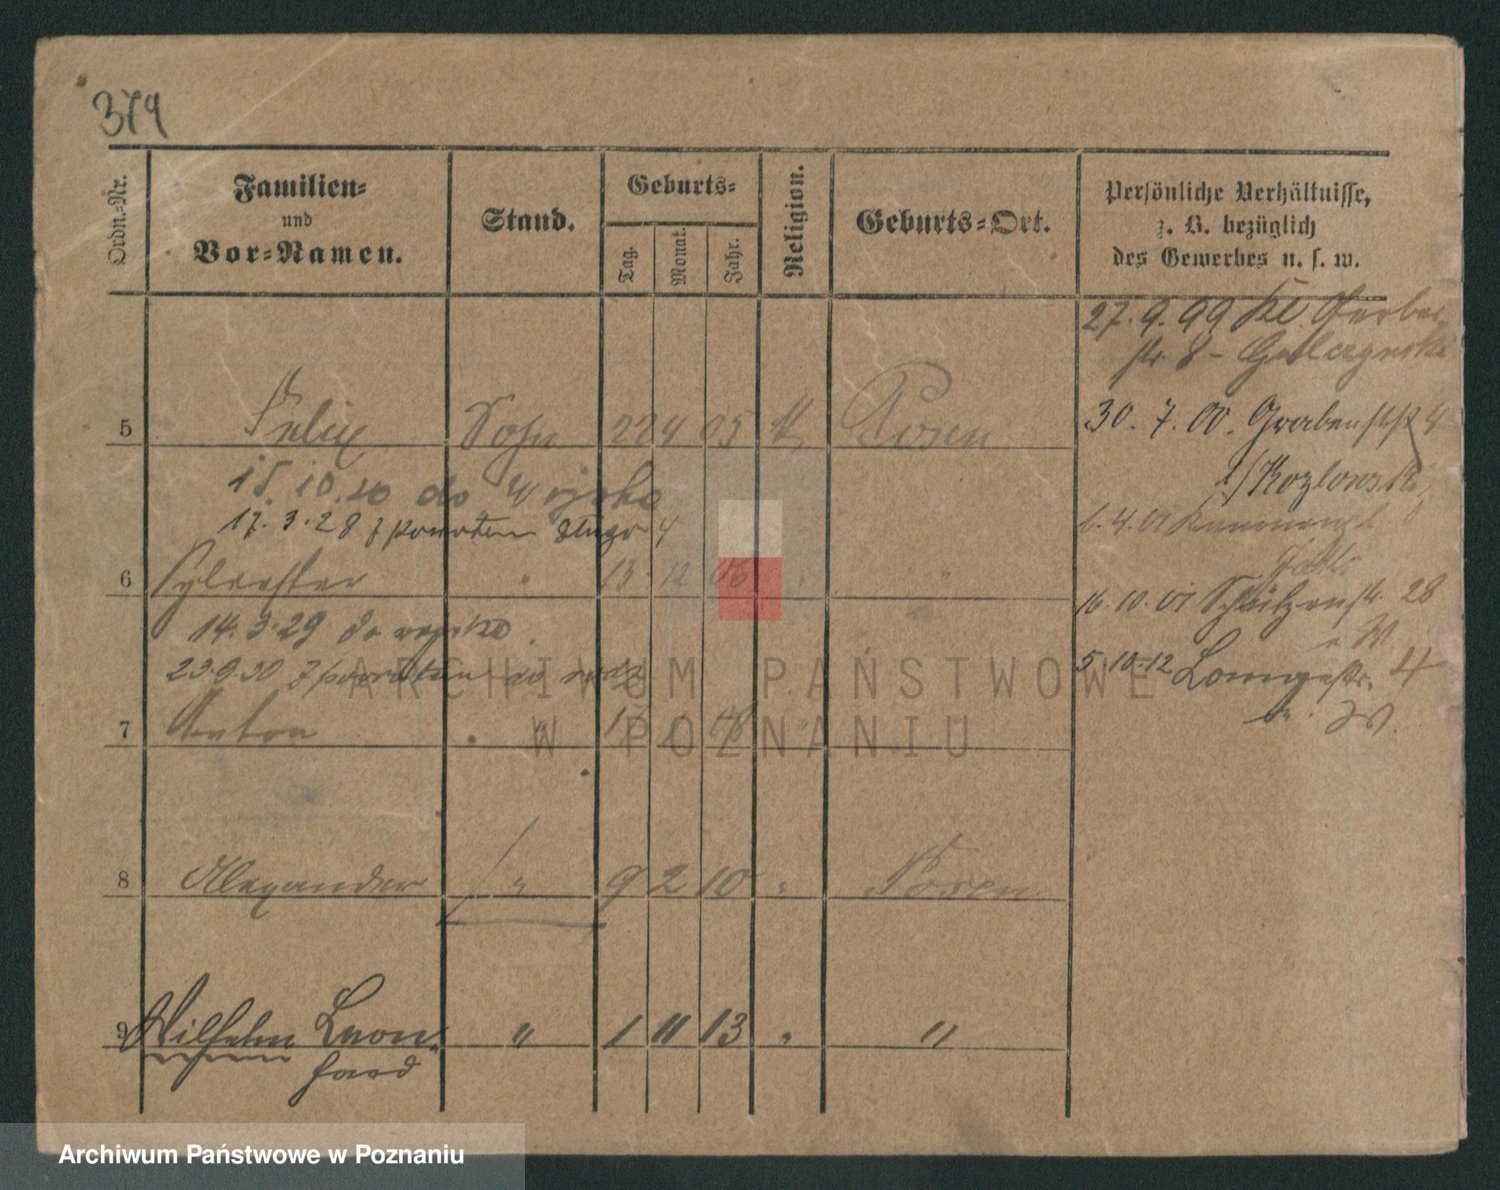 379
Ordn.-Nr.
Familien-
und
Vor-Namen.
Stand.
Geburts-
Tag.
Monat.
Jahr.
Religion.
Geburts-Ort.
Persönliche Verhältnisse,
z. B. bezüglich
des Gewerbes u. s. w.
27. 9. 99 Kl. Gerber
str 8 -
5 Felix Sohn 22 4 05 K Posen
30. 7. 00. Grabenstr 4
b/ Kozlowski
15. 10. do Wojska
17. 3. 28 z powrotem Długa 4
6. 4. 01
6 Sylvester " 13 12 06 " "
16. 10. 01 Schützenstr. 28
b. W
14. 3. 29 do wojska.
23.9.30 z powrotem do
5.10.12 Lange str. 4
b. W.
7 Anton " 08 " "
8 Alexander " 9 2 10 " Posen
9 Wilhelm Leon-
hard " 1 11 13 " "
ARCHIWUM PAŃSTWOWE
W POZNANIU
Archiwum Państwowe w Poznaniu